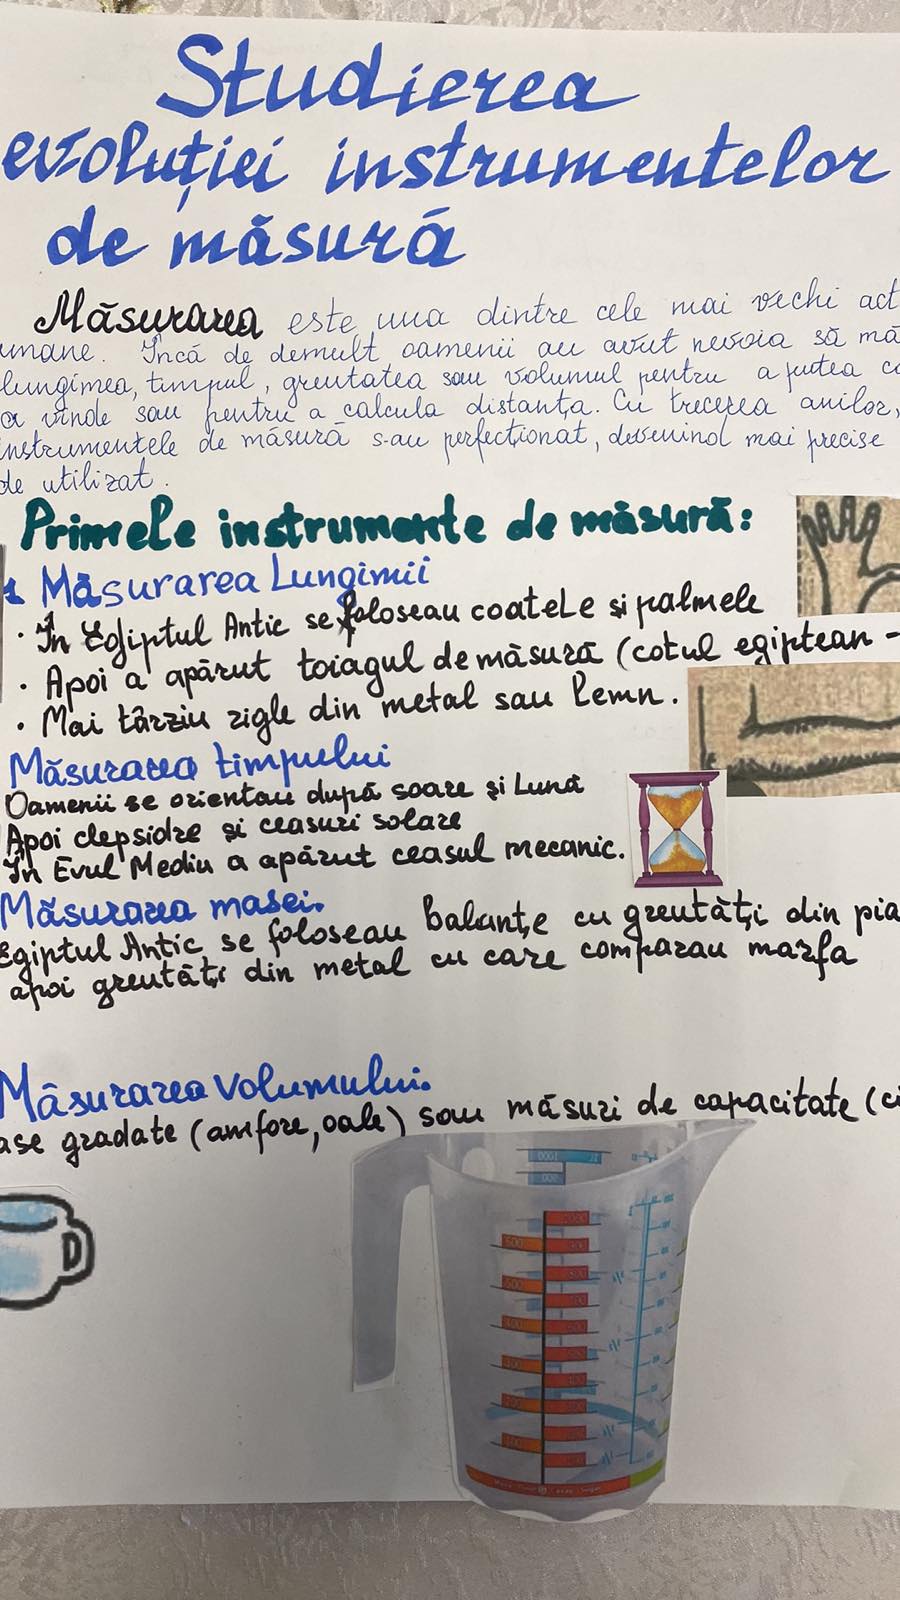 Studierea
evoluției instrumentelor
de măsură
Măsurarea este una dintre cele mai vechi act
umane. Încă de demult oamenii au avut nevoia să mă
lungimea, timpul, greutatea sau volumul pentru a putea c
a vinde sau pentru a calcula distanța. Cu trecerea anilor,
instrumentele de măsură s-au perfecționat, devenind mai precise
de utilizat.
Primele instrumente de măsură:
1 Măsurarea Lungimii
· În Egiptul Antic se foloseau coatele și palmele
· Apoi a apărut toiagul de măsură (cotul egiptean -
· Mai târziu rigle din metal sau lemn.
Măsurarea timpului
Oamenii se orientau după soare și Lună
Apoi clepsidre și ceasuri solare
În Evul Mediu a apărut ceasul mecanic.
Măsurarea masei.
Egiptul Antic se foloseau balanțe cu greutăți din pia
apoi greutăți din metal cu care comparau marfa
Măsurarea volumului.
ase gradate (amfore, oale) sau măsuri de capacitate (ci